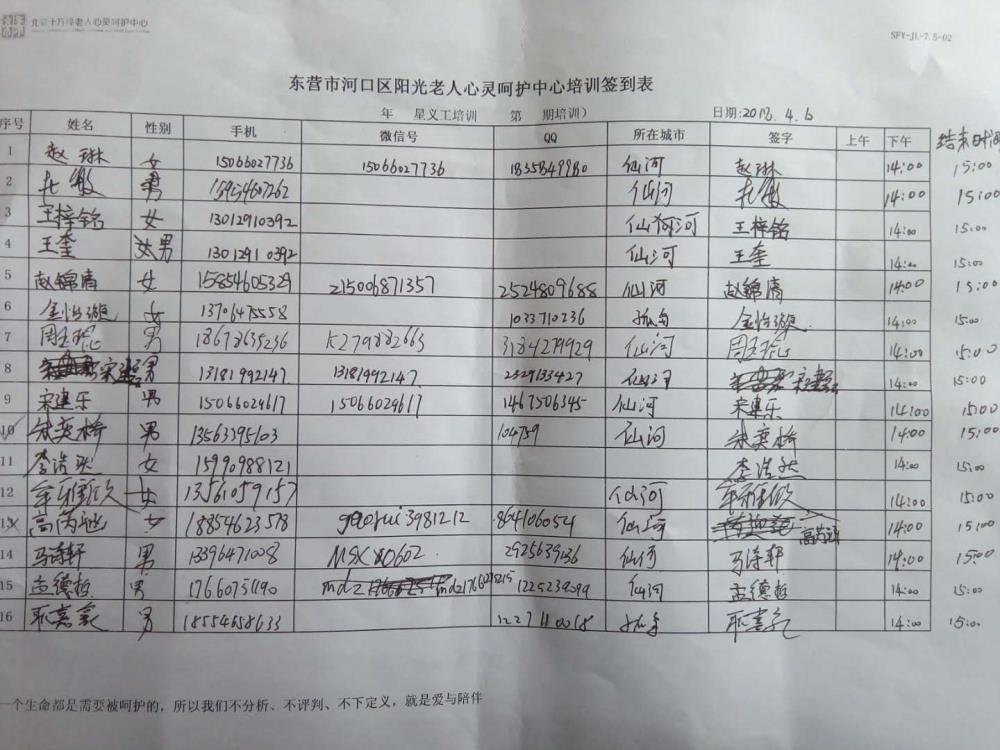 北京十方缘老人心灵呵护中心
SFY-JL-7.5-02
东营市河口区阳光老人心灵呵护中心培训签到表
年 星义工培训 第 期培训） 日期:2018.4.6
序号 姓名 性别 手机 微信号 QQ 所在城市 签字 上午 下午 结束时间
1 赵琳 女 15066027736 15066027736 1855849980 仙河 赵琳 14:00 15:00
2 男 13954607262 仙河 14:00 15:00
3 王梓铭 女 13012910392 仙河 王梓铭 14:00 15:00
4 王奎 男 13012910392 仙河 王奎 14:00 15:00
5 赵锦 女 15854605329 215006871357 2524809688 仙河 赵锦 14:00 15:00
6 金怡 女 13706475558 1033710236 孤岛 金怡 14:00 15:00
7 周玉 男 18678635236 K279882663 3184279929 仙河 周玉 14:00 15:00
8 宋建 男 13181992147 13181992147 2329133427 仙河 宋建 14:00 15:00
9 宋建乐 男 15066024617 15066024617 1467506345 仙河 宋建乐 14:00 15:00
10 男 13563395103 104759 仙河 14:00 15:00
11 李浩然 女 15990988121 李浩然 14:00 15:00
12 女 13561059157 仙河 14:00 15:00
13 高芮 女 18854623578 gaorui3981212 864106054 仙河 高芮 14:00 15:00
14 马诗轩 男 13396471008 MSX80602 2925639136 仙河 马诗轩 14:00 15:00
15 孟德哲 男 17660751190 1225239099 仙河 孟德哲 14:00 15:00
16 耿嘉 男 18554658633 孤岛 耿嘉 14:00 15:00
一个生命都是需要被呵护的，所以我们不分析、不评判、不下定义，就是爱与陪伴